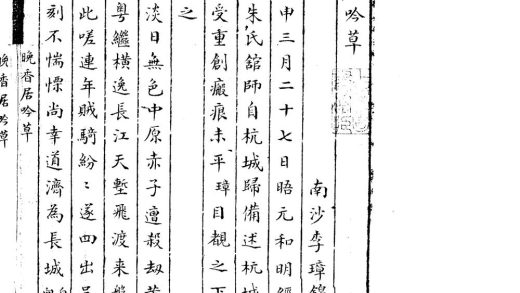 吟草
南沙李璋錦
申三月二十七日晤元和明經
朱氏舘師自杭城歸備述杭城
受重創瘢痕未平璋目覩之下
之
淡日無色中原赤子遭殺刼黃
粤繼橫逸長江天塹飛渡来盤
此嗟連年賊騎紛〻遂四出吳
刻不惴慄尚幸道濟為長城
晚香居吟草
晚香居吟草